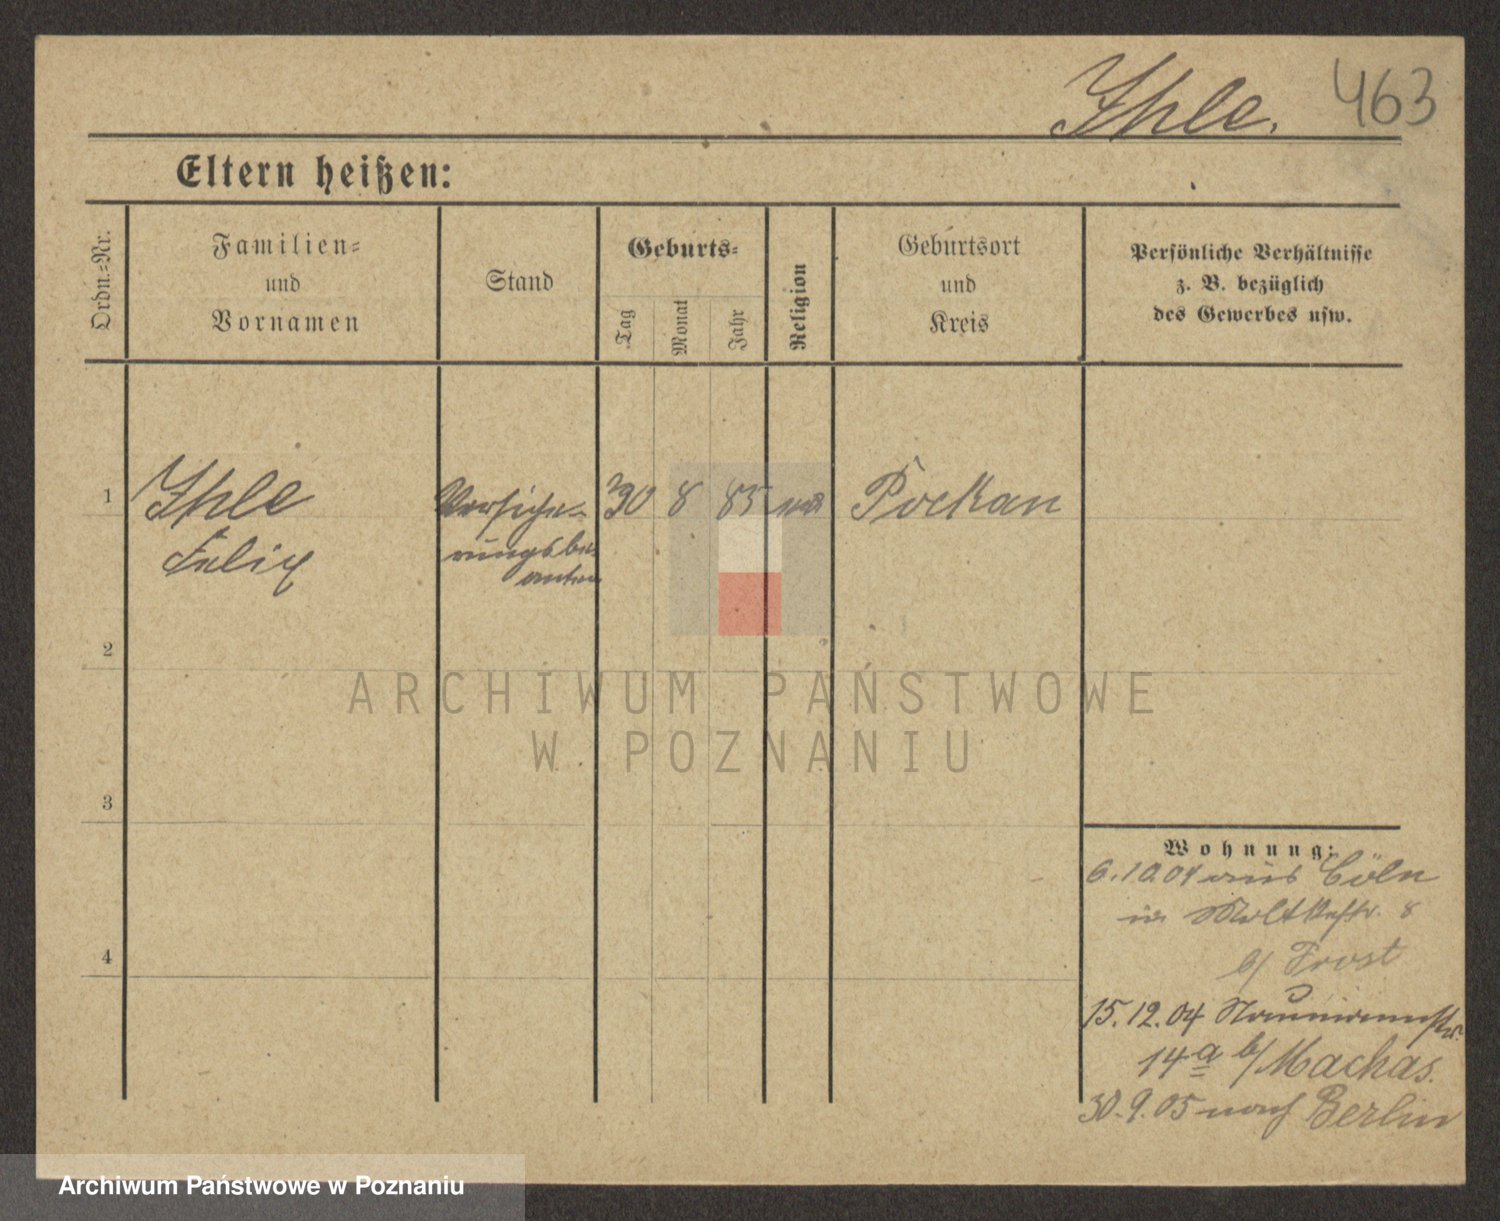 Ihle.
463
Eltern heißen:
Ordn.=Nr.
Familien=
und
Vornamen
Stand
Geburts=
Tag
Monat
Jahr
Religion
Geburtsort
und
Kreis
Persönliche Verhältnisse
z. B. bezüglich
des Gewerbes usw.
1
Ihle
Felix
Versiche=
rungsbe=
30 8 85
Pockau
2
3
4
Wohnung:
6.10.04 aus Cöln
in Moltkestr. 8
b/ Frost
15.12.04 Naumannstr.
14a b/ Machas.
30.9.05 nach Berlin
ARCHIWUM PAŃSTWOWE
W POZNANIU
Archiwum Państwowe w Poznaniu